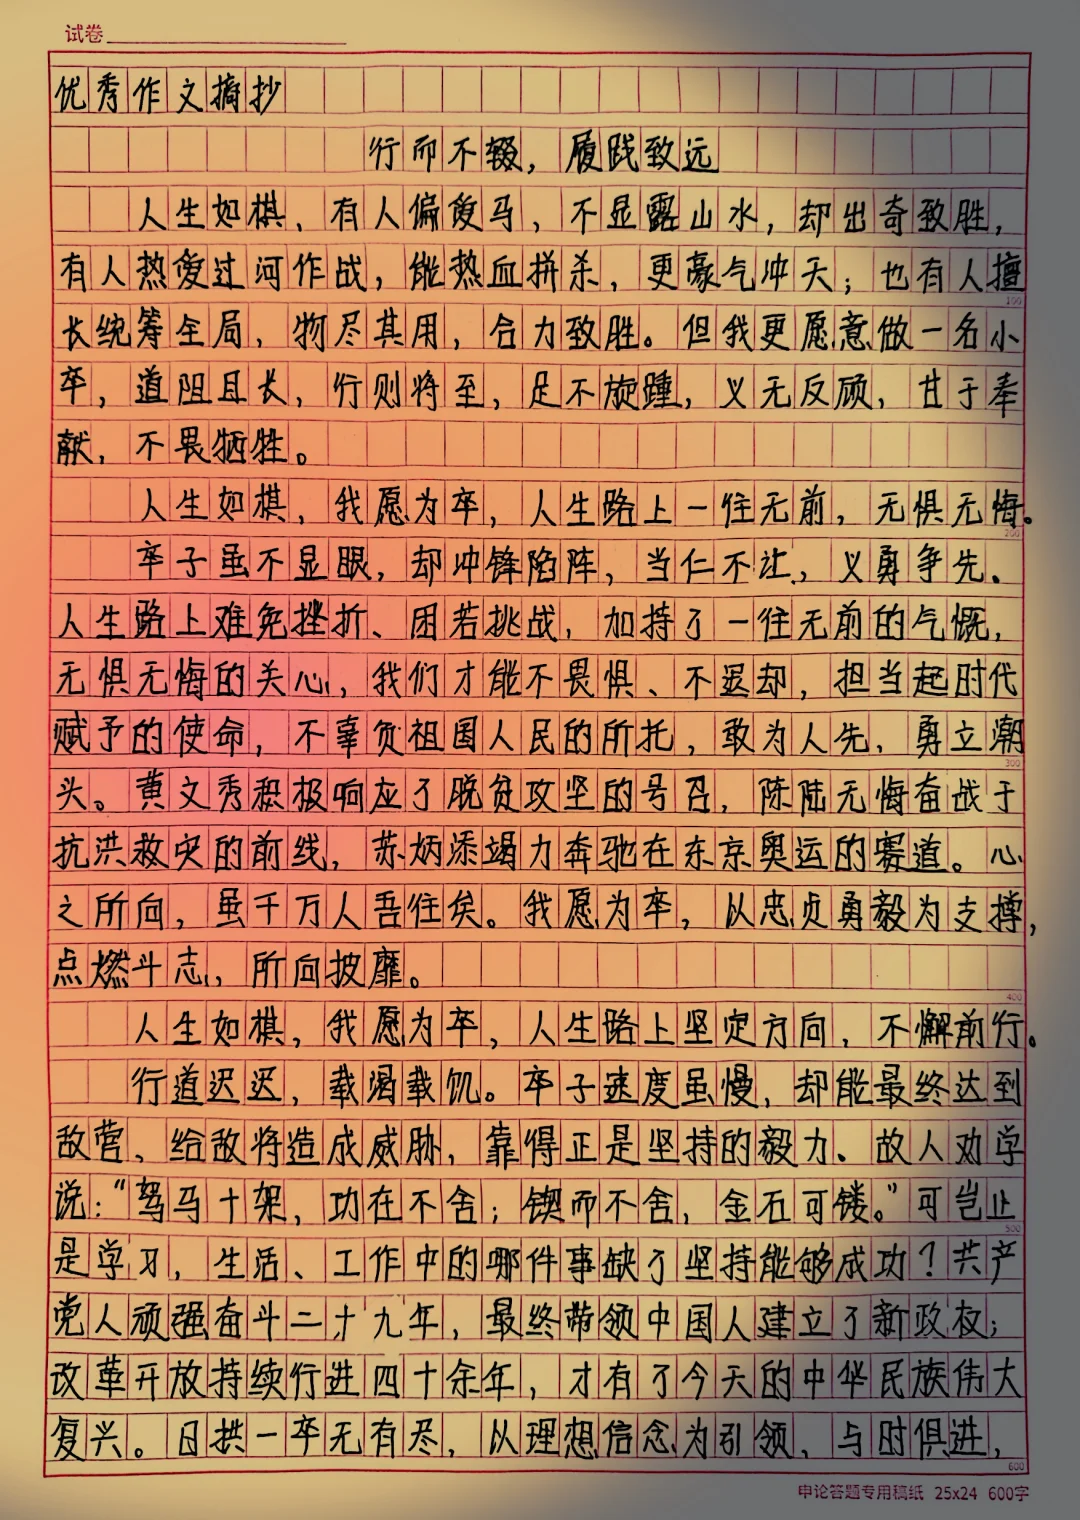 试卷
优秀作文摘抄
行而不辍，履践致远
人生如棋、有人偏爱马，不显露山水，却出奇致胜，
有人热爱过河作战，能热血拼杀，更豪气冲天；也有人擅
100
长统筹全局，物尽其用，合力致胜。但我更愿意做一名小
卒，道阻且长，行则将至，足不旋踵，义无反顾，甘于奉
献，不畏牺牲。
人生如棋，我愿为卒，人生路上一往无前，无惧无悔。
200
卒子虽不显眼，却冲锋陷阵，当仁不让，义勇争先。
人生路上难免挫折、困若挑战，加持了一往无前的气慨，
无惧无悔的关心，我们才能不畏惧、不退却，担当起时代
赋予的使命，不辜负祖国人民的所托，敢为人先，勇立潮
300
头。黄文秀积极响应了脱贫攻坚的号召，陈陆无悔奋战于
抗洪救灾的前线，苏炳添竭力奔驰在东京奥运的赛道。心
之所向，虽千万人吾往矣。我愿为卒，以忠贞勇毅为支撑，
点燃斗志，所向披靡。
400
人生如棋，我愿为卒，人生路上坚定方向，不懈前行。
行道迟迟，载渴载饥。卒子速度虽慢，却能最终达到
敌营、给敌将造成威胁，靠得正是坚持的毅力、故人劝学
说：“驽马十架，功在不舍；锲而不舍，金石可镂。”可岂止
500
是学习，生活、工作中的哪件事缺了坚持能够成功？共产
党人顽强奋斗二十九年，最终带领中国人建立了新政权；
改革开放持续行进四十余年，才有了今天的中华民族伟大
复兴。日拱一卒无有尽，以理想信念为引领，与时俱进，
600
申论答题专用稿纸 25x24 600字